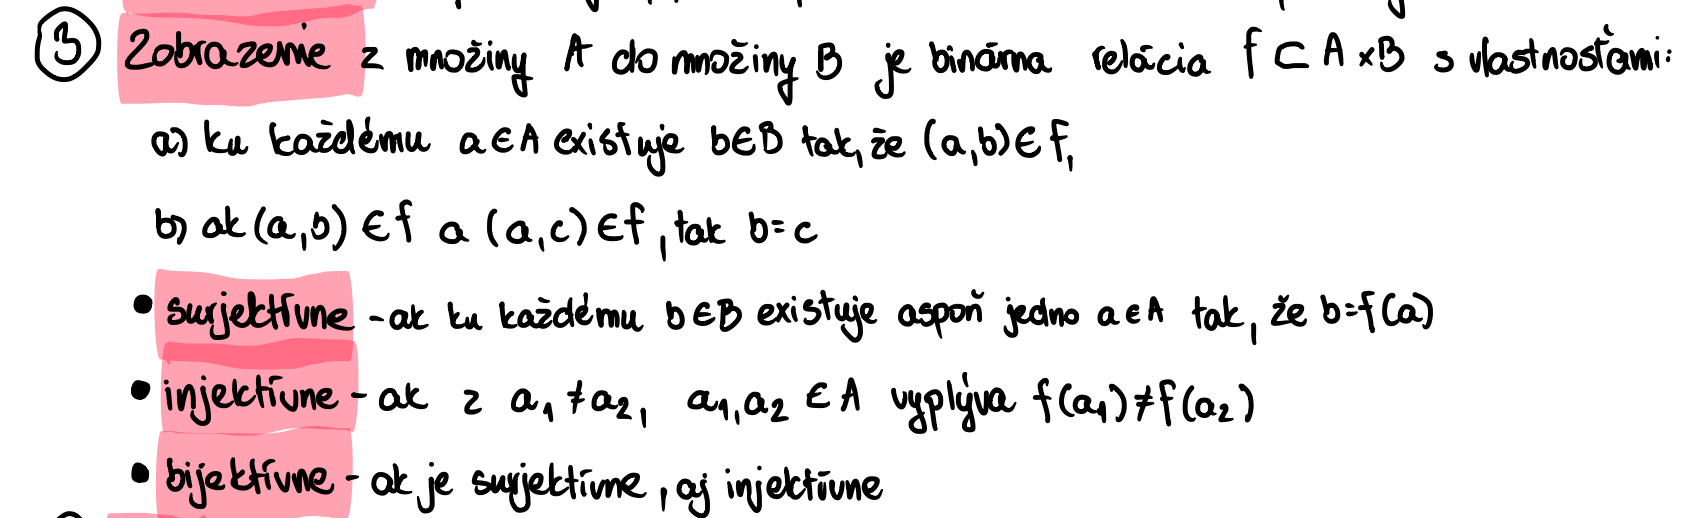 ③ Zobrazenie z množiny A do množiny B je binárna relácia f ⊂ A×B s vlastnosťami:
a) ku každému a∈A existuje b∈B tak, že (a,b)∈f,
b) ak (a,b) ∈f a (a,c)∈f, tak b=c
• surjektívne - ak ku každému b∈B existuje aspoň jedno a∈A tak, že b=f(a)
• injektívne - ak z a₁≠a₂, a₁,a₂ ∈A vyplýva f(a₁)≠f(a₂)
• bijektívne - ak je surjektívne, aj injektívne